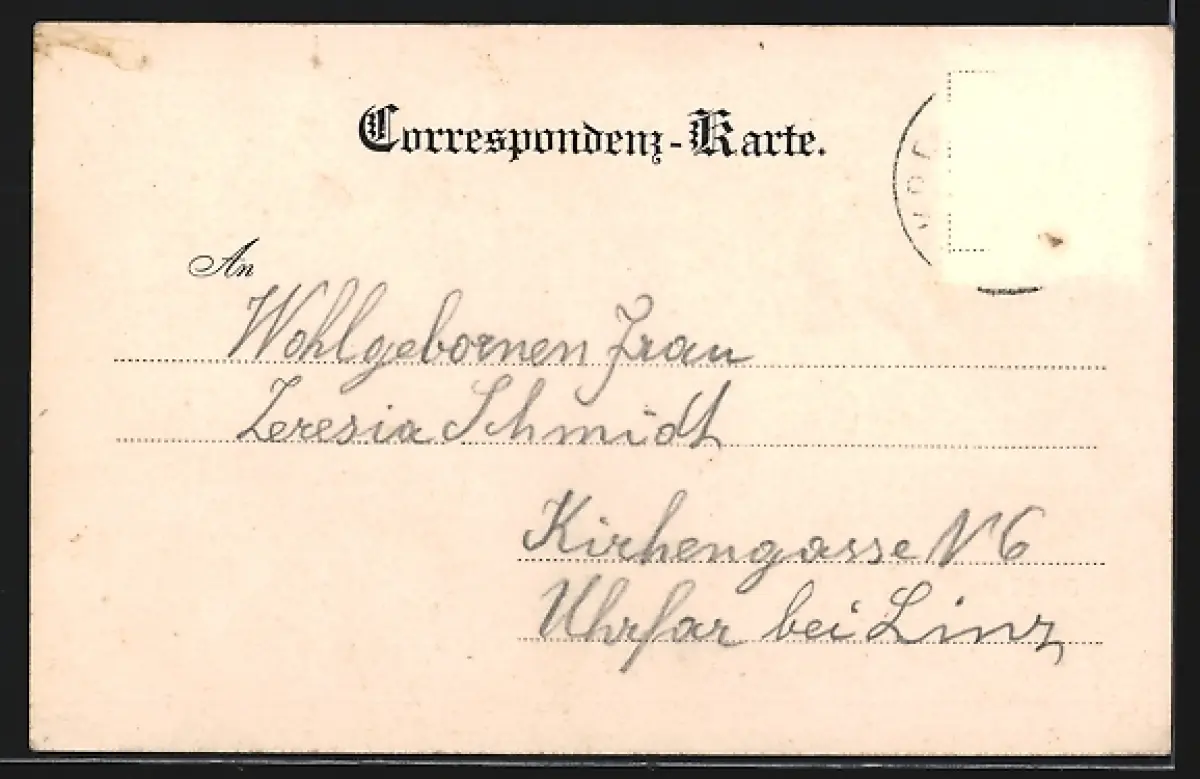 Correspondenz-Karte.
An
Wohlgebornen Frau
Teresia Schmidt
Kirhengasse N 6
Uhrfar bei Linz